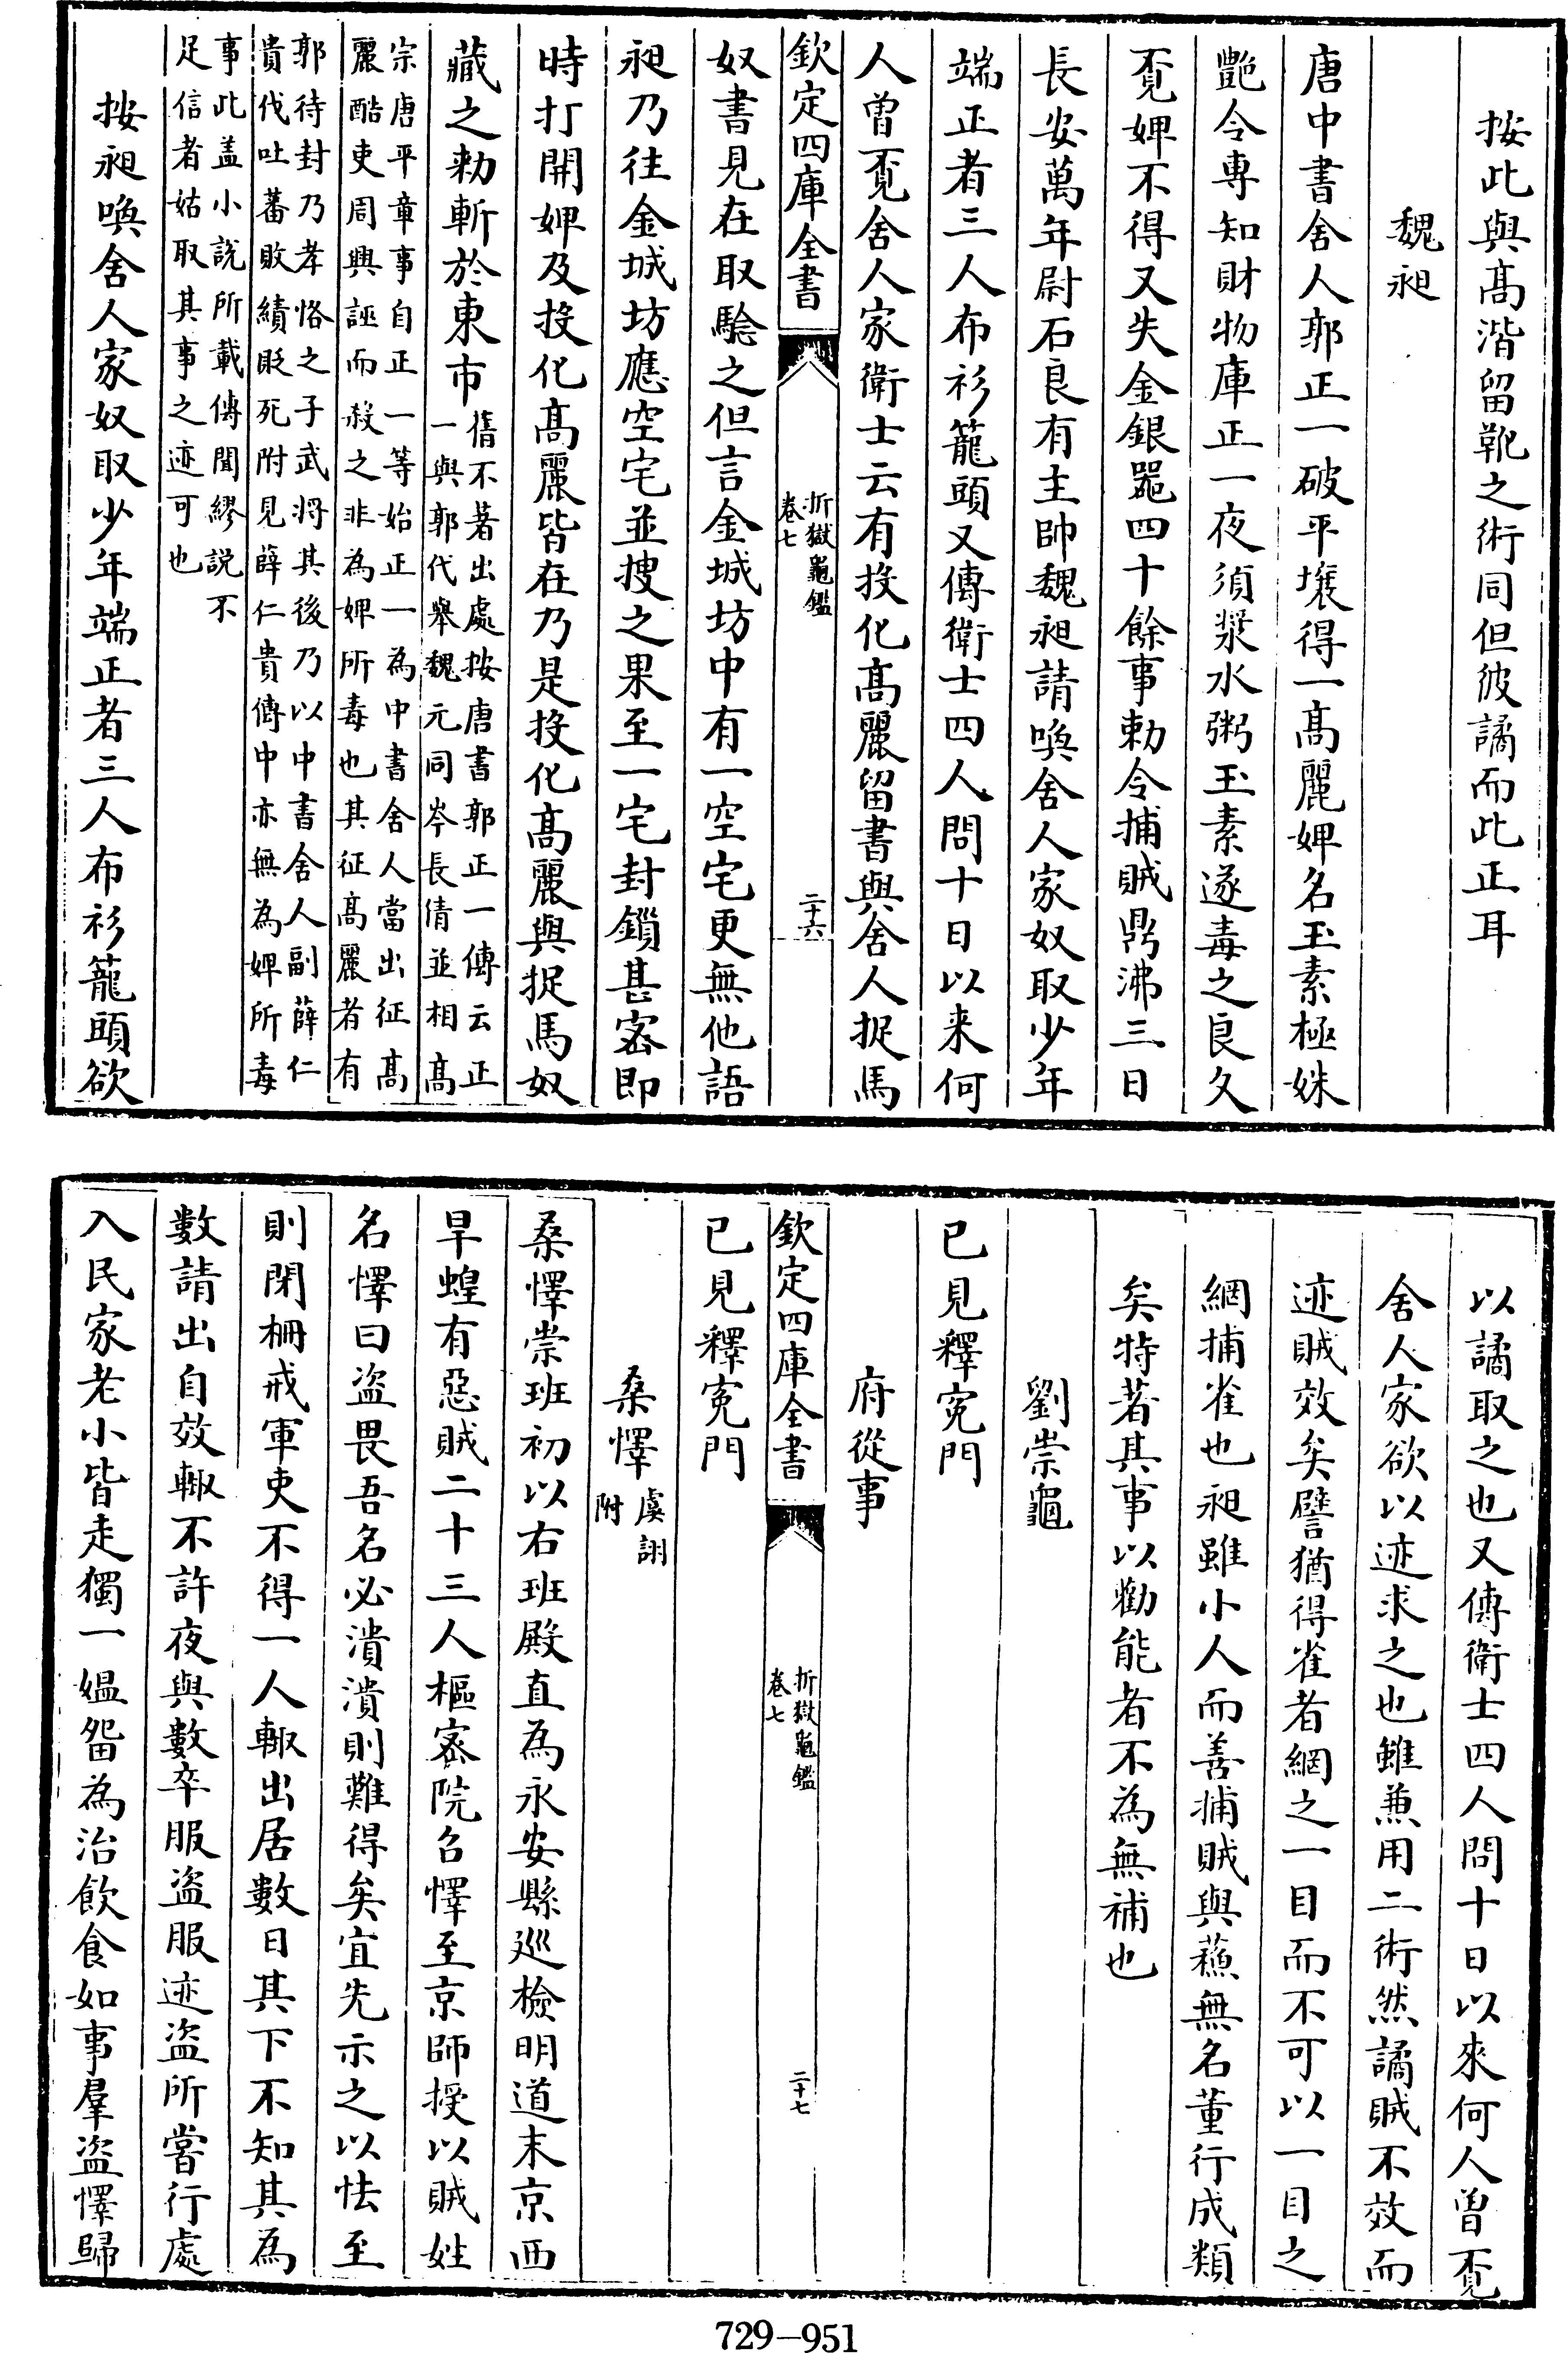 按此與髙湝留靴之術同但彼譎而此正耳
魏昶
唐中書舍人郭正一破平壤得一髙麗婢名玉素極姝
艶令專知財物庫正一夜須漿水粥玉素遂毒之良久
覔婢不得又失金銀噐四十餘事勅令捕賊鼎沸三日
長安萬年尉石良有主帥魏昶請喚舍人家奴取少年
端正者三人布衫籠頭又傳衛士四人問十日以来何
人曽覔舍人家衛士云有投化髙麗留書與舍人捉馬
欽定四庫全書
折獄龜鑑
卷七
二十六
奴書見在取驗之但言金城坊中有一空宅更無他語
昶乃往金城坊應空宅並搜之果至一宅封鎖甚宻即
時打開婢及投化髙麗皆在乃是投化髙麗與捉馬奴
藏之勅斬於東市
舊不著出處按唐書郭正一傳云正
一與郭代舉魏元同岑長倩並相髙
宗唐平章事自正一等始正一為中書舍人當出征髙
麗酷吏周興誣而殺之非為婢所毒也其征髙麗者有
郭待封乃孝恪之子武將其後乃以中書舍人副薛仁
貴伐吐蕃敗績貶死附見薛仁貴傳中亦無為婢所毒
事此盖小説所載傳聞繆説不
足信者姑取其事之迹可也
按昶喚舍人家奴取少年端正者三人布衫籠頭欲
以譎取之也又傳衛士四人問十日以來何人曽覔
舍人家欲以迹求之也雖兼用二術然譎賊不效而
迹賊效矣譬猶得雀者網之一目而不可以一目之
網捕雀也昶雖小人而善捕賊與蘓無名董行成類
矣特著其事以勸能者不為無補也
劉崇龜
已見釋寃門
府從事
欽定四庫全書
折獄龜鑑
卷七
二十七
已見釋寃門
桑懌
虞詡
附
桑懌崇班初以右班殿直為永安縣巡檢明道末京西
旱蝗有惡賊二十三人樞宻院召懌至京師授以賊姓
名懌曰盗畏吾名必潰潰則難得矣宜先示之以怯至
則閉柵戒軍吏不得一人輙出居數日其下不知其為
數請出自效輙不許夜與數卒服盗服迹盗所嘗行處
入民家老小皆走獨一媪留為治飲食如事羣盗懌歸
729—951